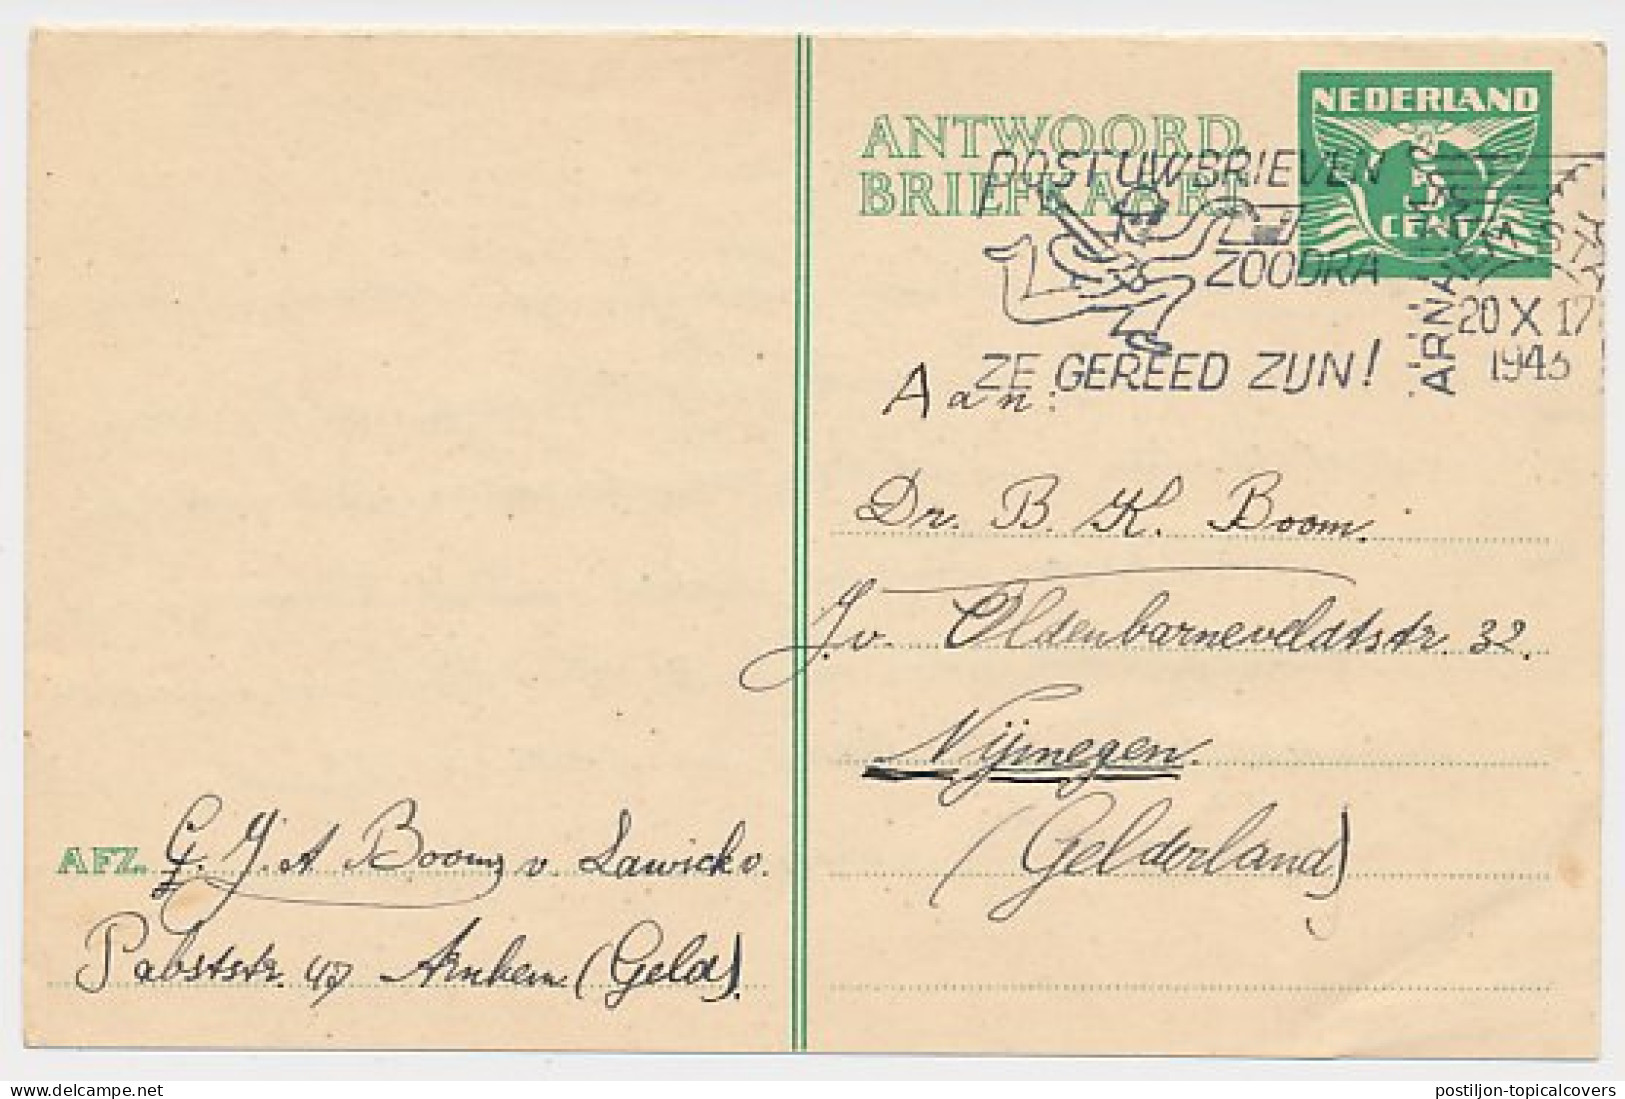 ANTWOORD
BRIEFKAART
NEDERLAND
5
CENT
POST UW BRIEVEN
ZOODRA
ZE GEREED ZIJN!
ARNHEM
20 X 17
1943
Aan:
Dr. B. K. Boom.
J. v. Oldenbarneveldtstr. 32.
Nijmegen.
(Gelderland)
AFZ. G. J. A. Boom v. Lawick v.
Pabststr. 47 Arnhem (Geld).
postiljon-topicalcovers